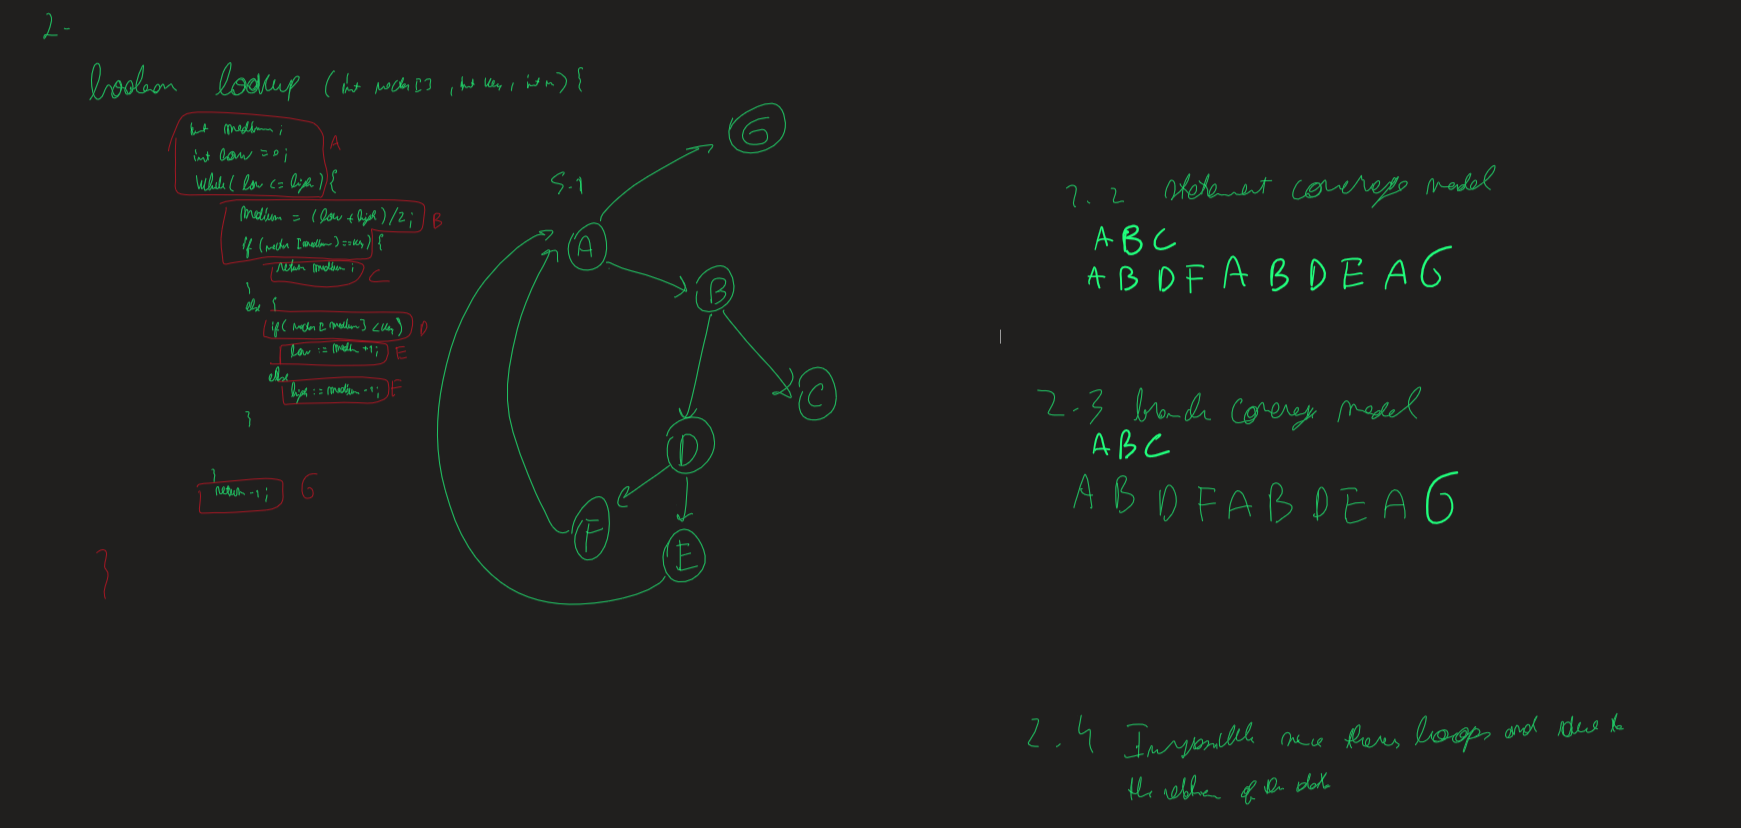 2-
boolean lookup (int vector[], int key, int n) {
int medium;
int low = 0;
while (low <= high) {
A
medium = (low + high)/2;
B
if (vector [medium] == key) {
return medium;
C
}
else {
if (vector [medium] < key)
D
low := medium +1;
E
else
high := medium -1;
F
}
}
return -1;
G
}
S.1
G
A
B
C
D
F
E
2.2 statement coverage model
A B C
A B D F A B D E A G
2-3 branch coverage model
A B C
A B D F A B D E A G
2.4 Impossible since theres loops and due to
the of the data